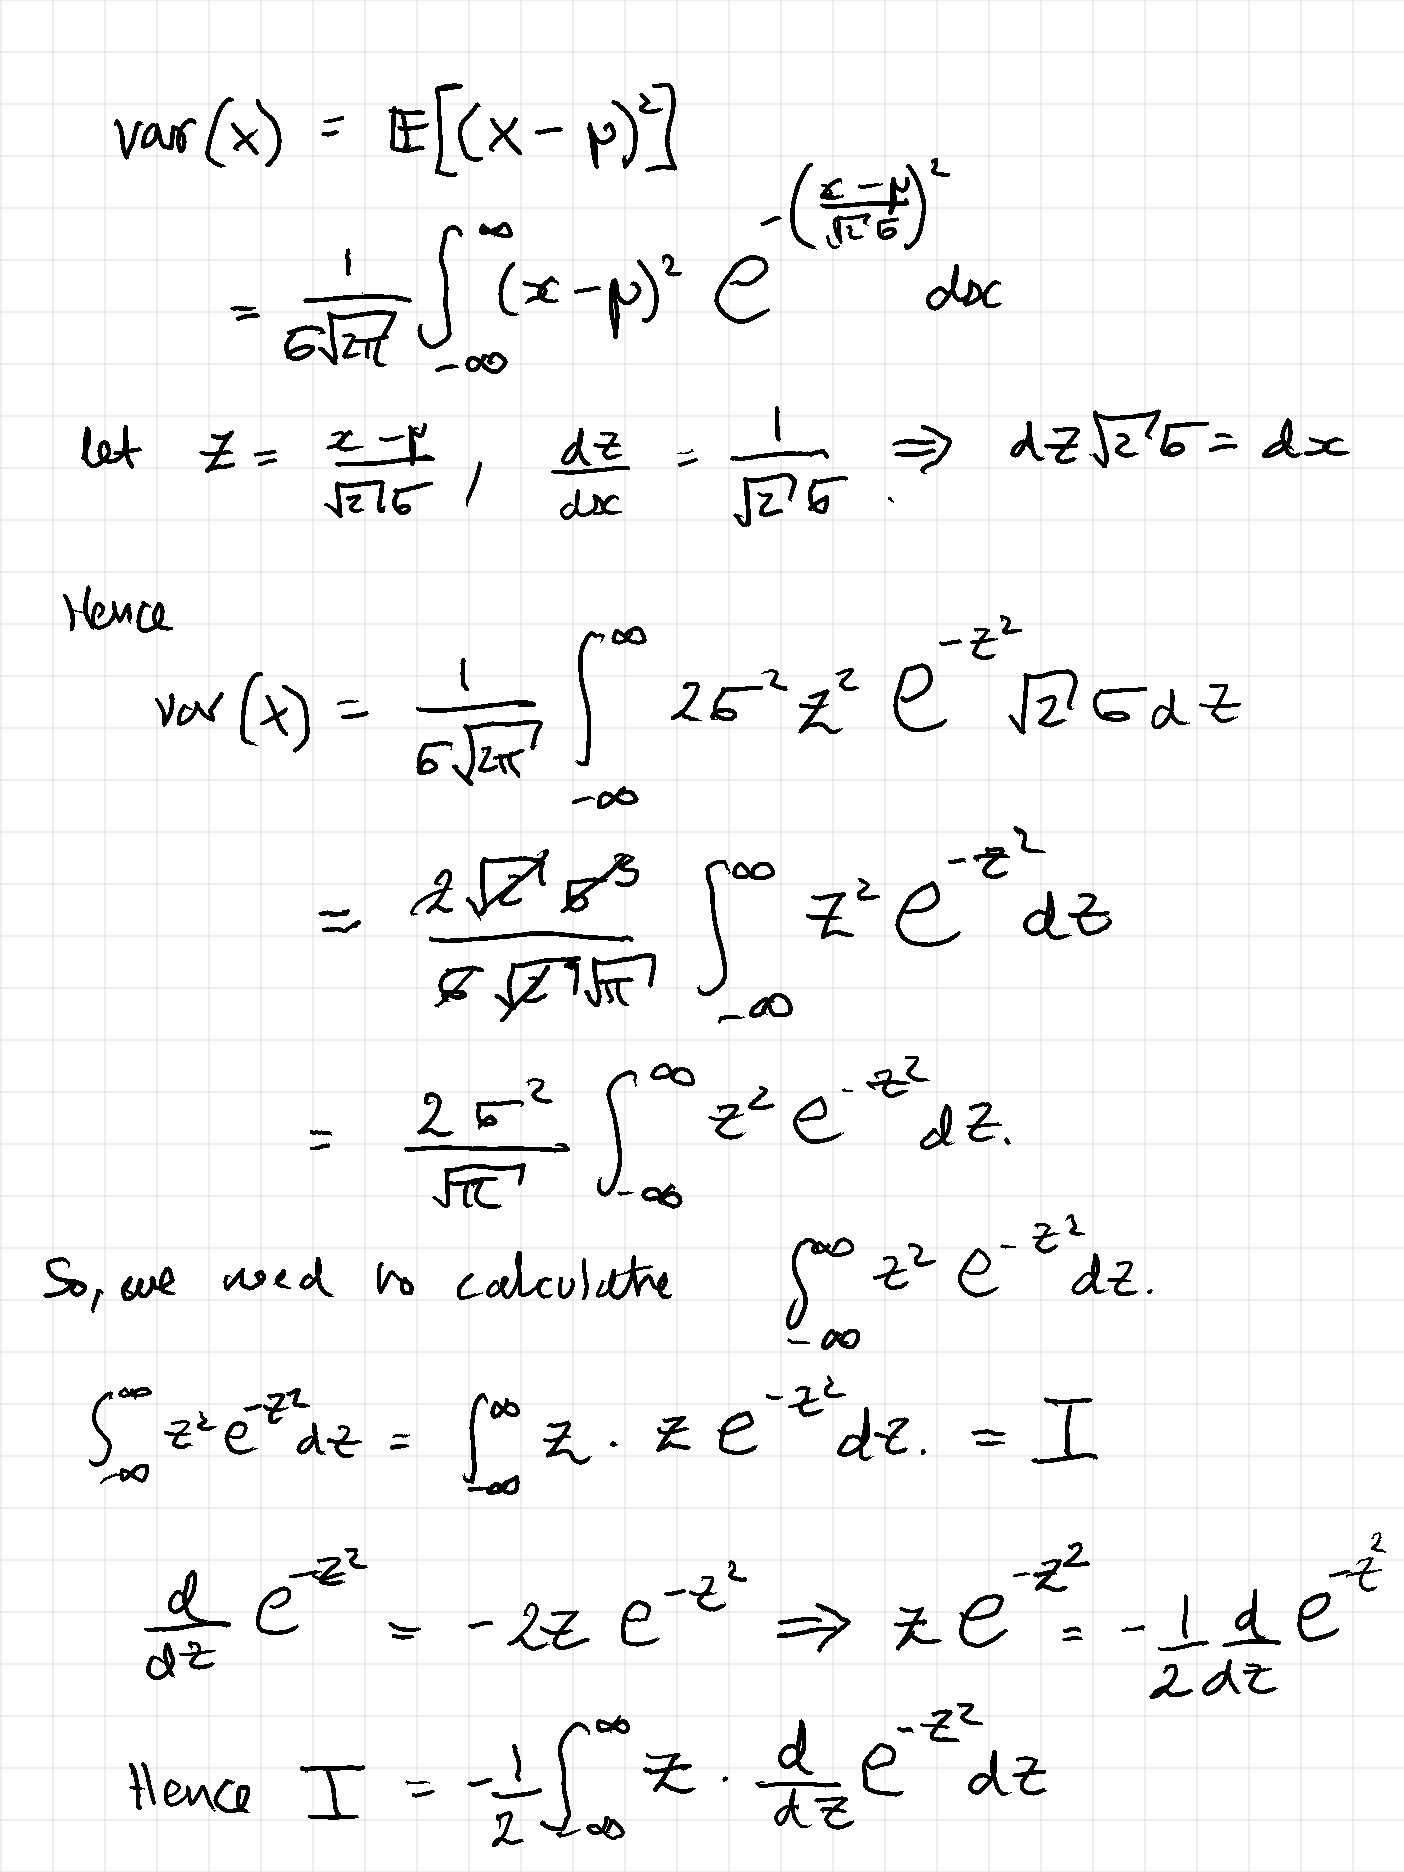 var(X) = 𝔼[(X-μ)²]
= 1/(σ√(2π)) ∫_{-∞}^{∞} (x-μ)² e^{-((x-μ)/(√2 σ))²} dx
let z = (x-μ)/(√2 σ), dz/dx = 1/(√2 σ). ⇒ dz√2 σ = dx
Hence
var(X) = 1/(σ√(2π)) ∫_{-∞}^{∞} 2σ² z² e^{-z²} √2 σ dz
= (2√2 σ³)/(σ√2 √π) ∫_{-∞}^{∞} z² e^{-z²} dz
= (2σ²)/√π ∫_{-∞}^{∞} z² e^{-z²} dz.
So, we need to calculate ∫_{-∞}^{∞} z² e^{-z²} dz.
∫_{-∞}^{∞} z² e^{-z²} dz = ∫_{-∞}^{∞} z · z e^{-z²} dz. = I
d/dz e^{-z²} = -2z e^{-z²} ⇒ z e^{-z²} = -1/2 d/dz e^{-z²}
Hence I = -1/2 ∫_{-∞}^{∞} z · d/dz e^{-z²} dz